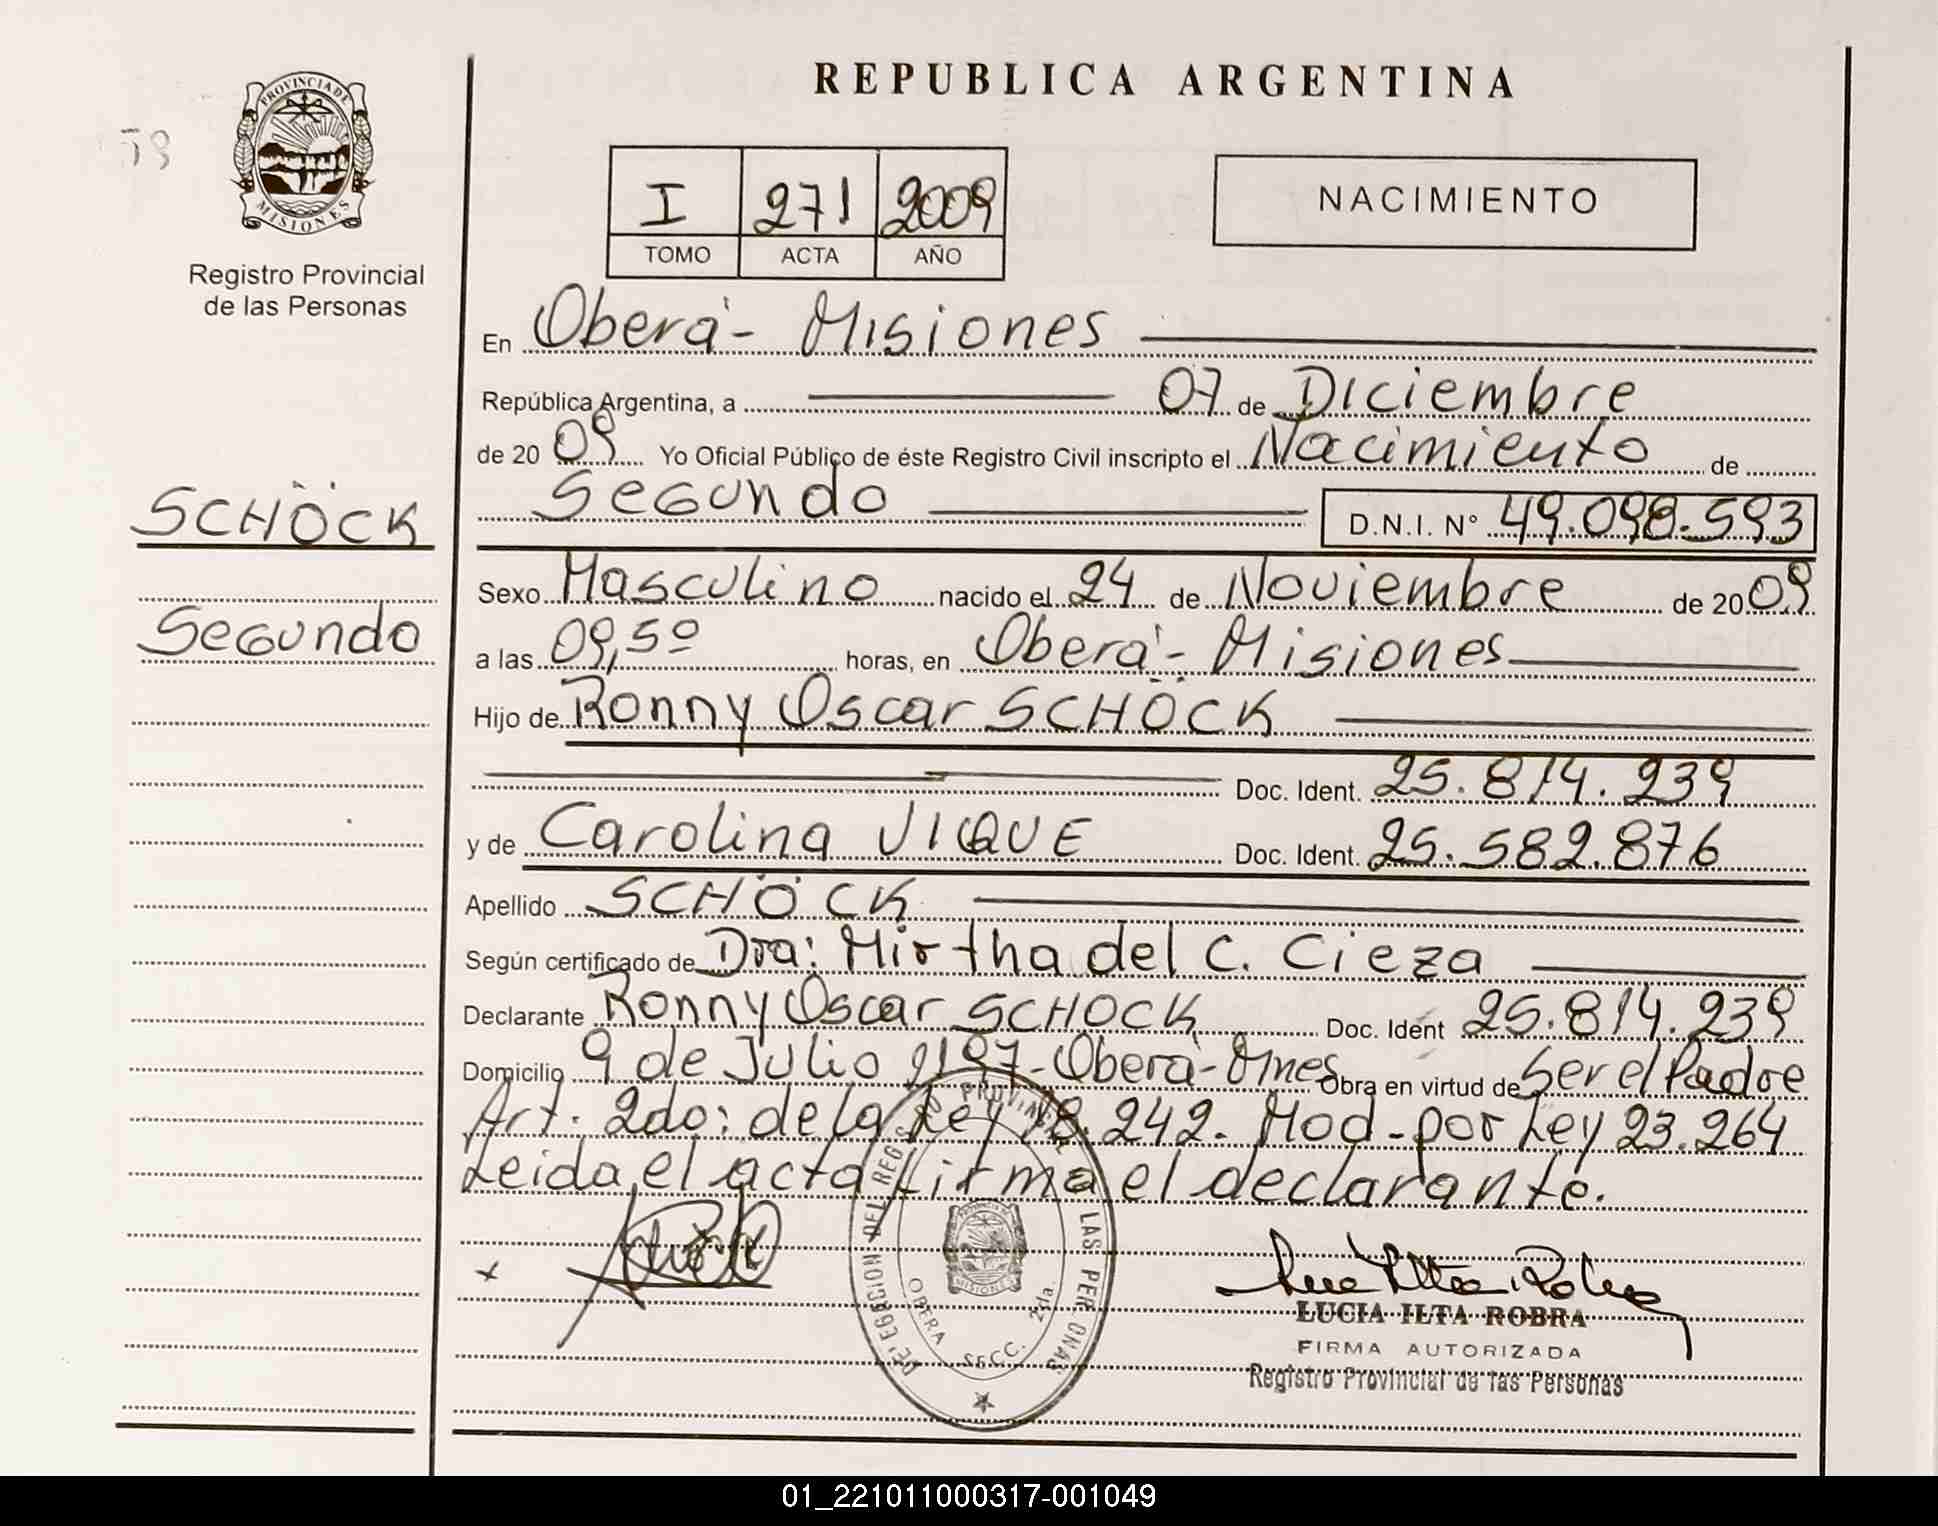 REPUBLICA ARGENTINA
PROVINCIA DE
MISIONES
Registro Provincial
de las Personas
I 271 2009
TOMO ACTA AÑO
NACIMIENTO
En Oberá - Misiones
República Argentina, a 07 de Diciembre
de 20 09 Yo Oficial Público de éste Registro Civil inscripto el Nacimiento de
Segundo D.N.I. N° 49.098.593
SCHÖCK
Segundo
Sexo Masculino nacido el 24 de Noviembre de 20 09
a las 09,50 horas, en Oberá - Misiones
Hijo de Ronny Oscar SCHÖCK
Doc. Ident. 25.814.239
y de Carolina VIQUE Doc. Ident. 25.582.876
Apellido SCHÖCK
Según certificado de Dra: Mirtha del C. Cieza
Declarante Ronny Oscar SCHOCK Doc. Ident 25.814.239
Domicilio 9 de Julio 2197 - Oberá - Mnes Obra en virtud de Ser el Padre
Art. 2do: de la Ley 18.242. Mod - por Ley 23.264
Leida el acta firma el declarante.
DELEGACION DEL REGISTRO PROVINCIAL DE LAS PERSONAS
OBERA SECC. 2da.
MISIONES
LUCIA ILTA ROBRA
FIRMA AUTORIZADA
Registro Provincial de las Personas
01_221011000317-001049